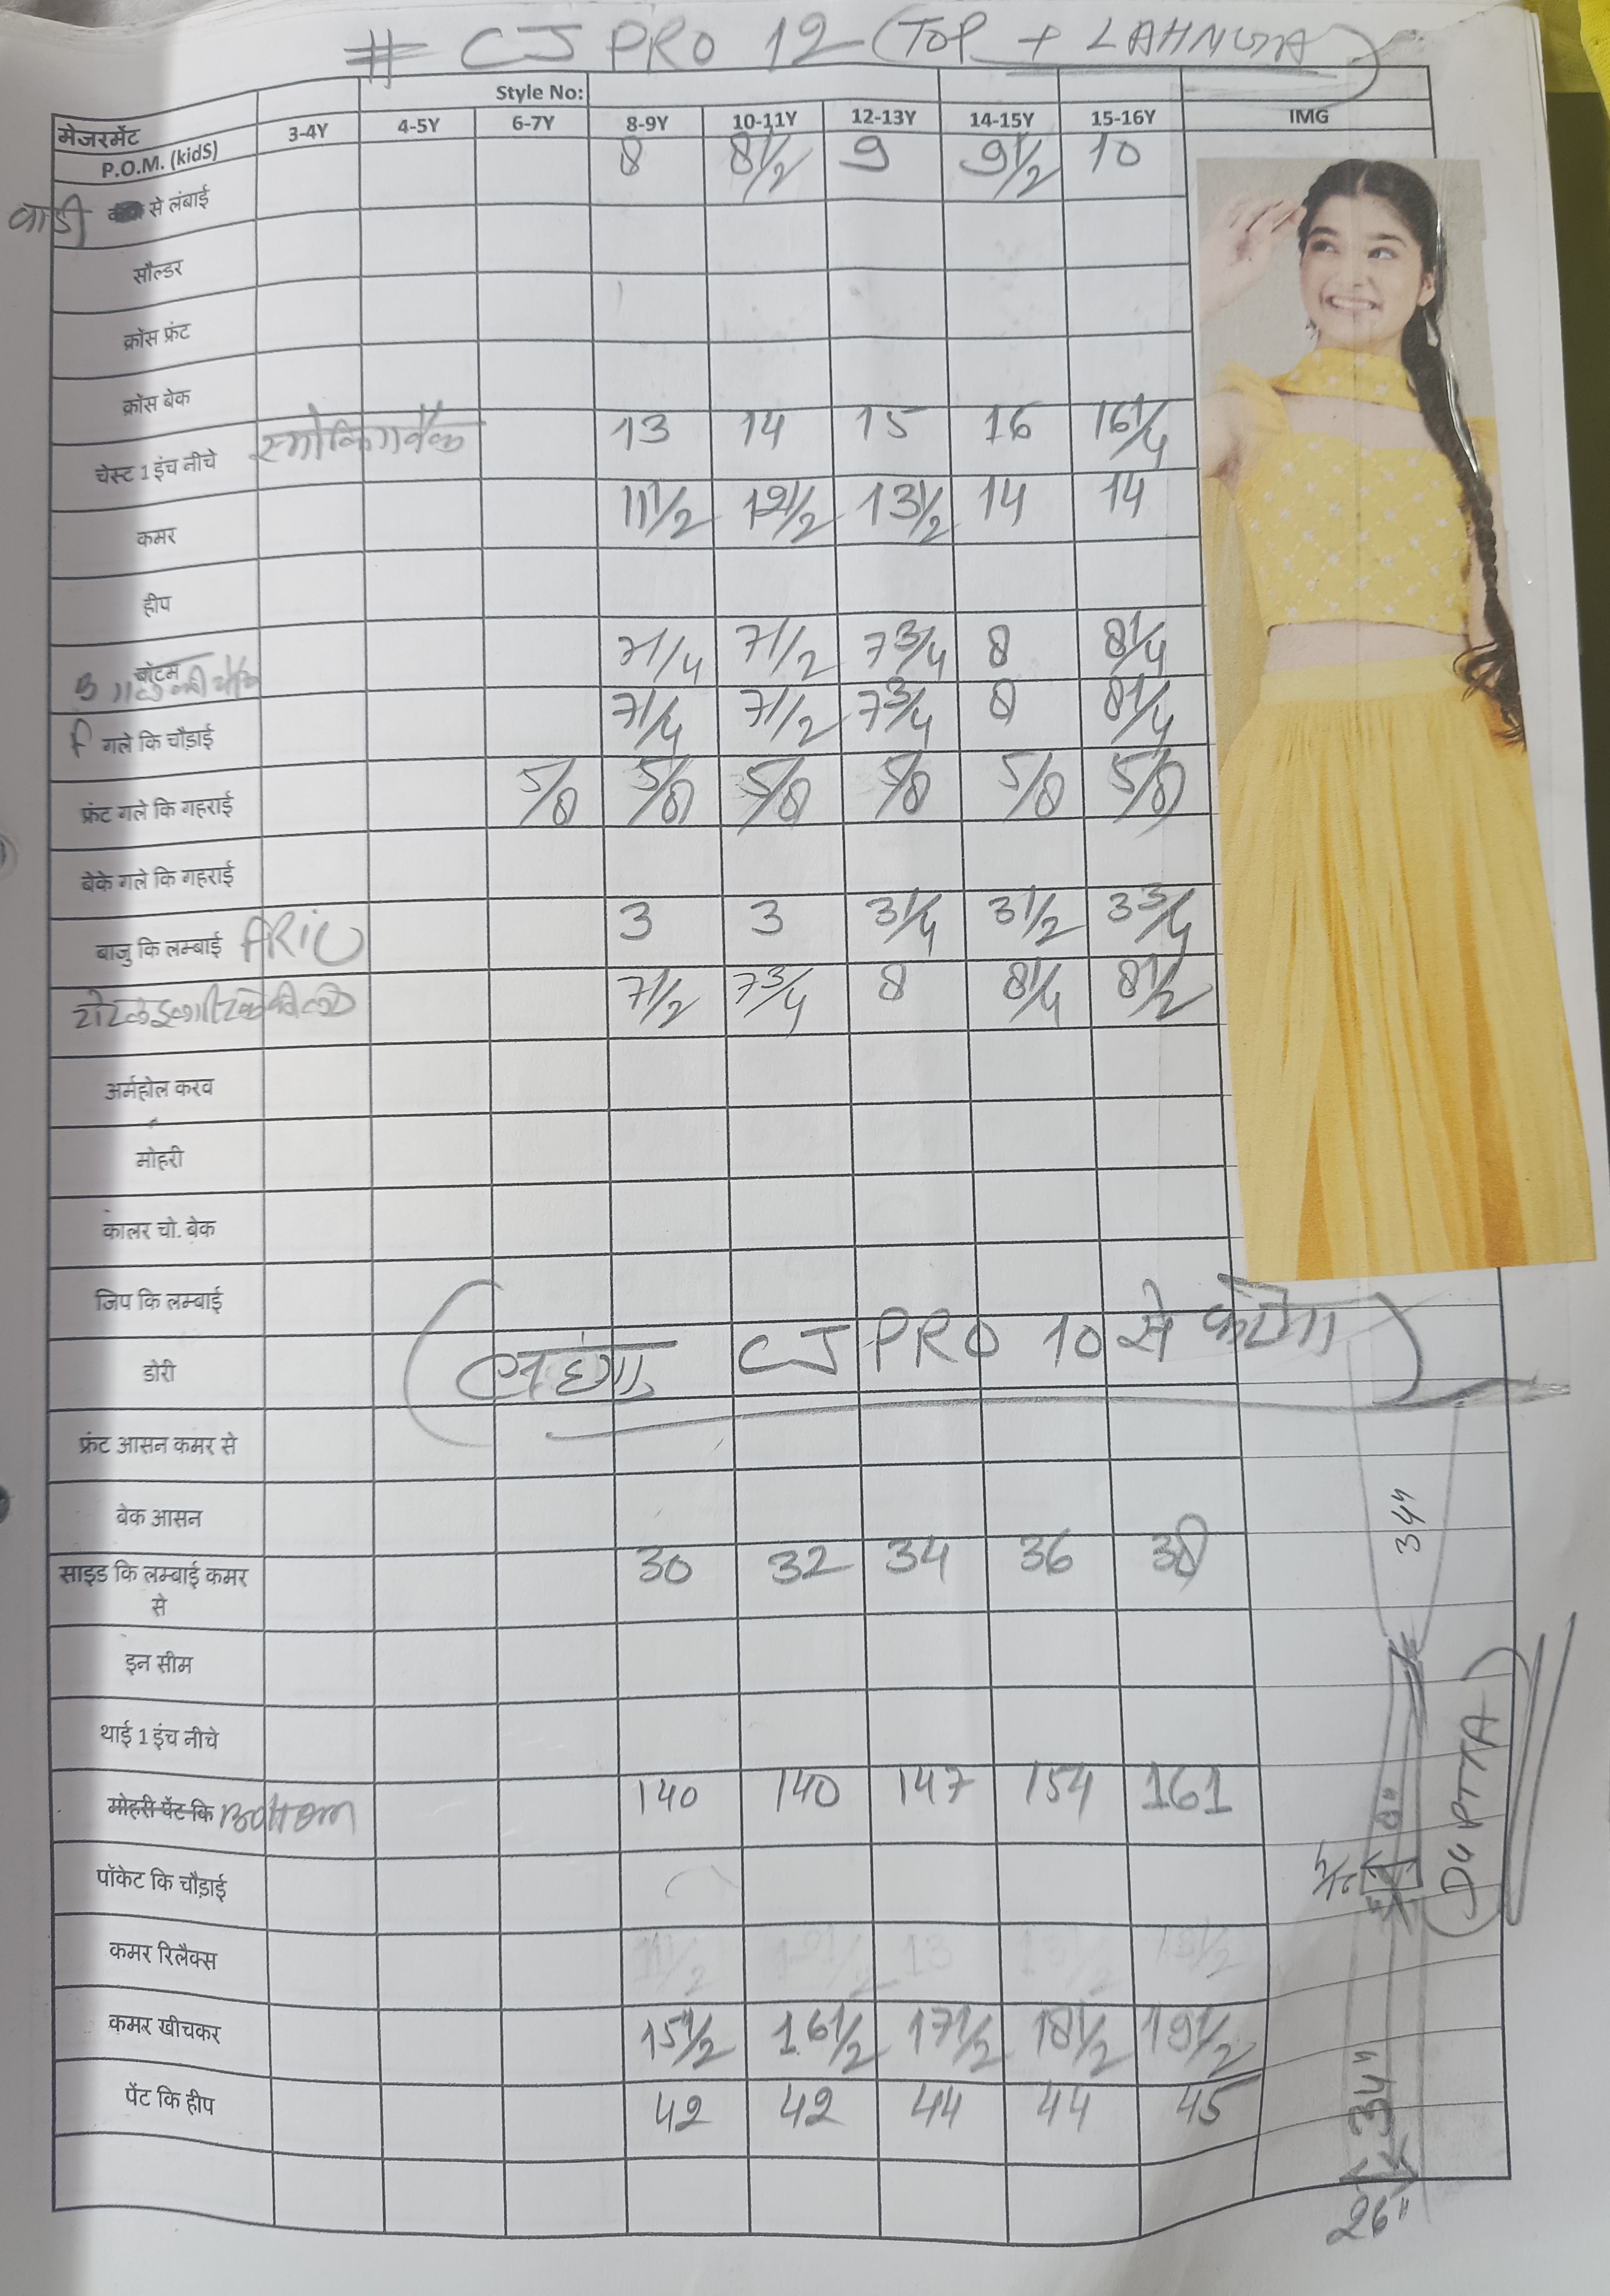 # CJ PRO 12 (TOP + LAHNGA)
Style No:
मेजरमेंट 3-4Y 4-5Y 6-7Y 8-9Y 10-11Y 12-13Y 14-15Y 15-16Y IMG
P.O.M. (kidS)
वाडी से लंबाई 8 8 1/2 9 9 1/2 10
सौल्डर
क्रॉस फ्रंट
क्रॉस बेक
चेस्ट 1 इंच नीचे 13 14 15 16 16 1/4
कमर 11 1/2 12 1/2 13 1/2 14 14
हीप
बॉटम 7 1/4 7 1/2 7 3/4 8 8 1/4
F गले कि चौड़ाई 7 1/4 7 1/2 7 3/4 8 8 1/4
फ्रंट गले कि गहराई 5/8 5/8 5/8 5/8 5/8 5/8
बेके गले कि गहराई
बाजु कि लम्बाई 3 3 3 1/4 3 1/2 3 3/4
7 1/2 7 3/4 8 8 1/4 8 1/2
अर्महोल करव
मोहरी
कालर चो. बेक
जिप कि लम्बाई
(लहंगा CJ PRO 10 से कटेगा)
डोरी
फ्रंट आसन कमर से
बेक आसन
साइड कि लम्बाई कमर से 30 32 34 36 38
इन सीम
थाई 1 इंच नीचे
मोहरी पेंट कि Bottom 140 140 147 154 161
पॉकेट कि चौड़ाई
कमर रिलैक्स 11 1/2 12 1/2 13 13 1/2 13 1/2
कमर खीचकर 15 1/2 16 1/2 17 1/2 18 1/2 19 1/2
पेंट कि हीप 42 42 44 44 45
34"
8"
(DUPTTA)
34"
26"